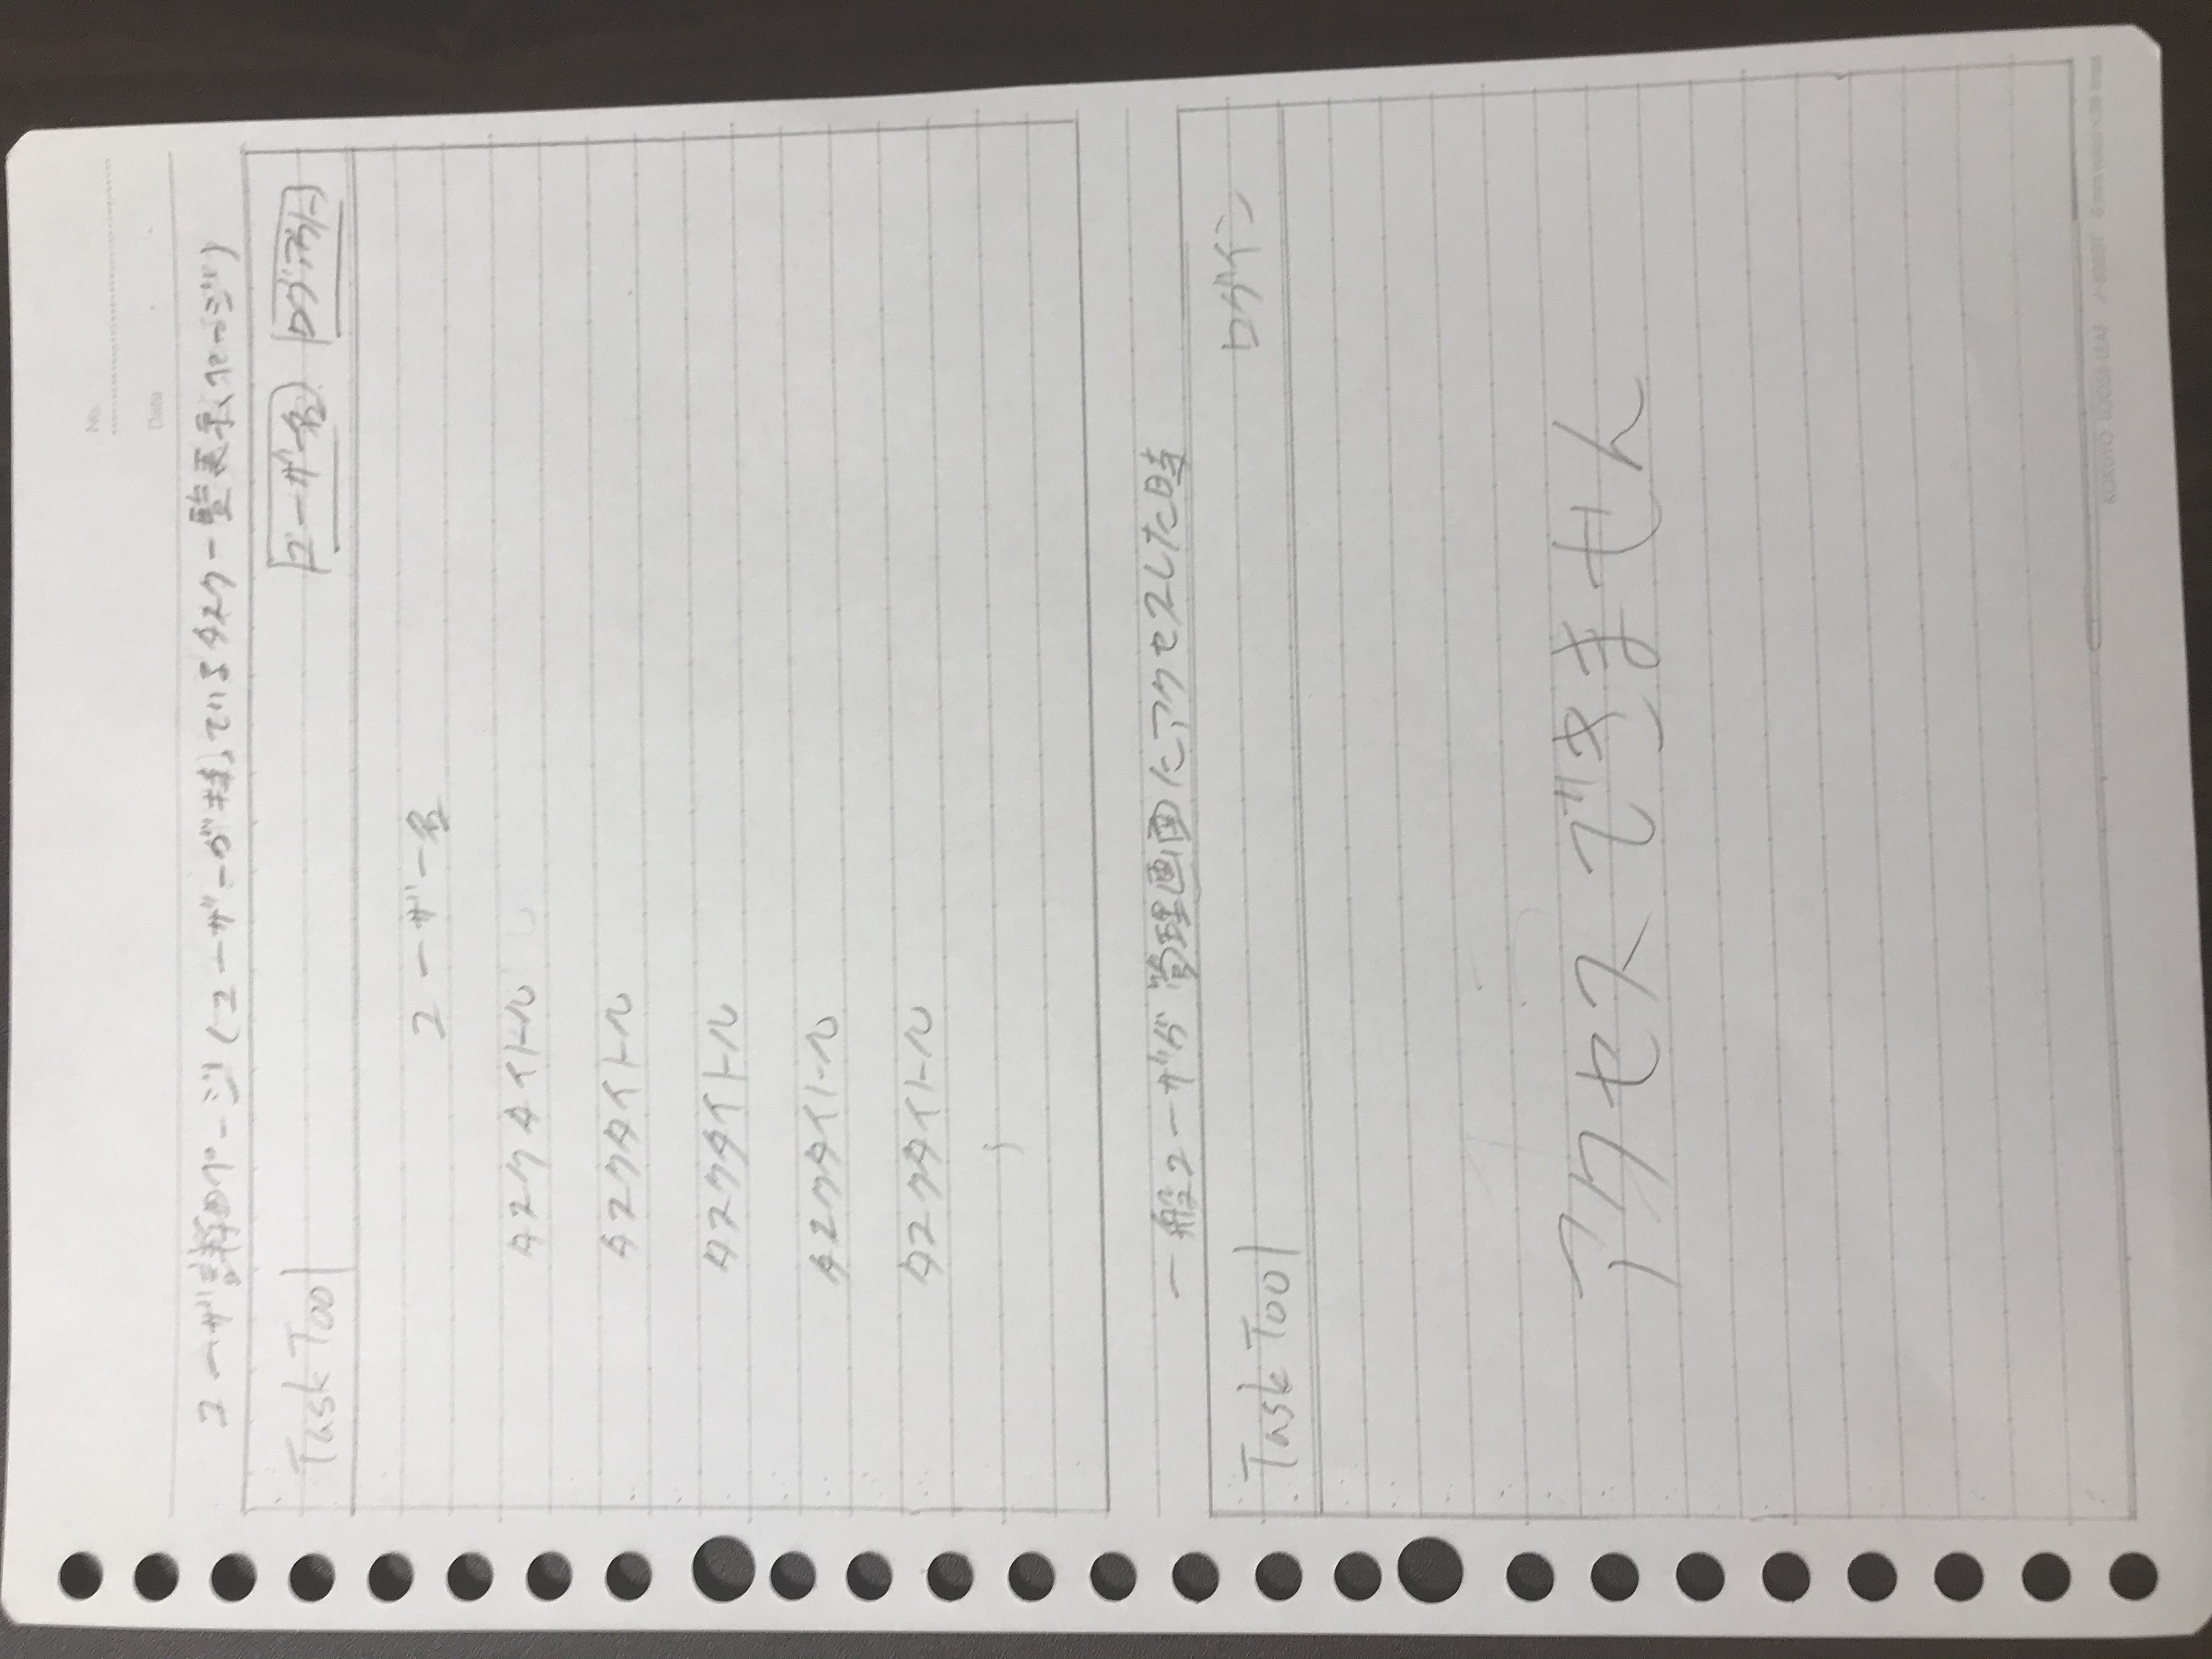 No.
Date
ユーザ詳細ページ(ユーザーが持っているタスク一覧表示ページ)
Task Tool ユーザー名 ログアウト
ユーザー名
タスクタイトル
タスクタイトル
タスクタイトル
タスクタイトル
タスクタイトル
一般ユーザが管理画面にアクセスした時
Task Tool ログイン
アクセスできません
KOKUYO LOOSE-LEAF ノ-836BT 6 mm ruled×36 lines